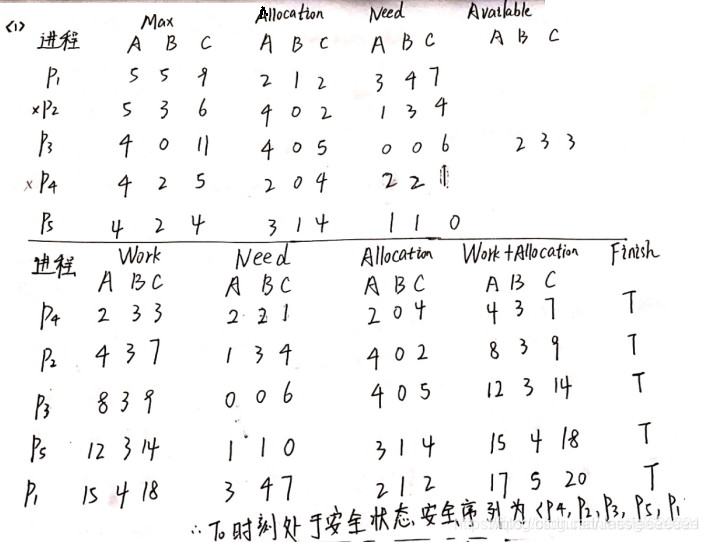 <1> Max Allocation Need Available
进程 A B C A B C A B C A B C
P1 5 5 9 2 1 2 3 4 7
×P2 5 3 6 4 0 2 1 3 4
P3 4 0 11 4 0 5 0 0 6 2 3 3
×P4 4 2 5 2 0 4 2 2 1
P5 4 2 4 3 1 4 1 1 0
进程 Work Need Allocation Work+Allocation Finish
A B C A B C A B C A B C
P4 2 3 3 2 2 1 2 0 4 4 3 7 T
P2 4 3 7 1 3 4 4 0 2 8 3 9 T
P3 8 3 9 0 0 6 4 0 5 12 3 14 T
P5 12 3 14 1 1 0 3 1 4 15 4 18 T
P1 15 4 18 3 4 7 2 1 2 17 5 20 T
∴ T0时刻处于安全状态,安全序列为<P4,P2,P3,P5,P1